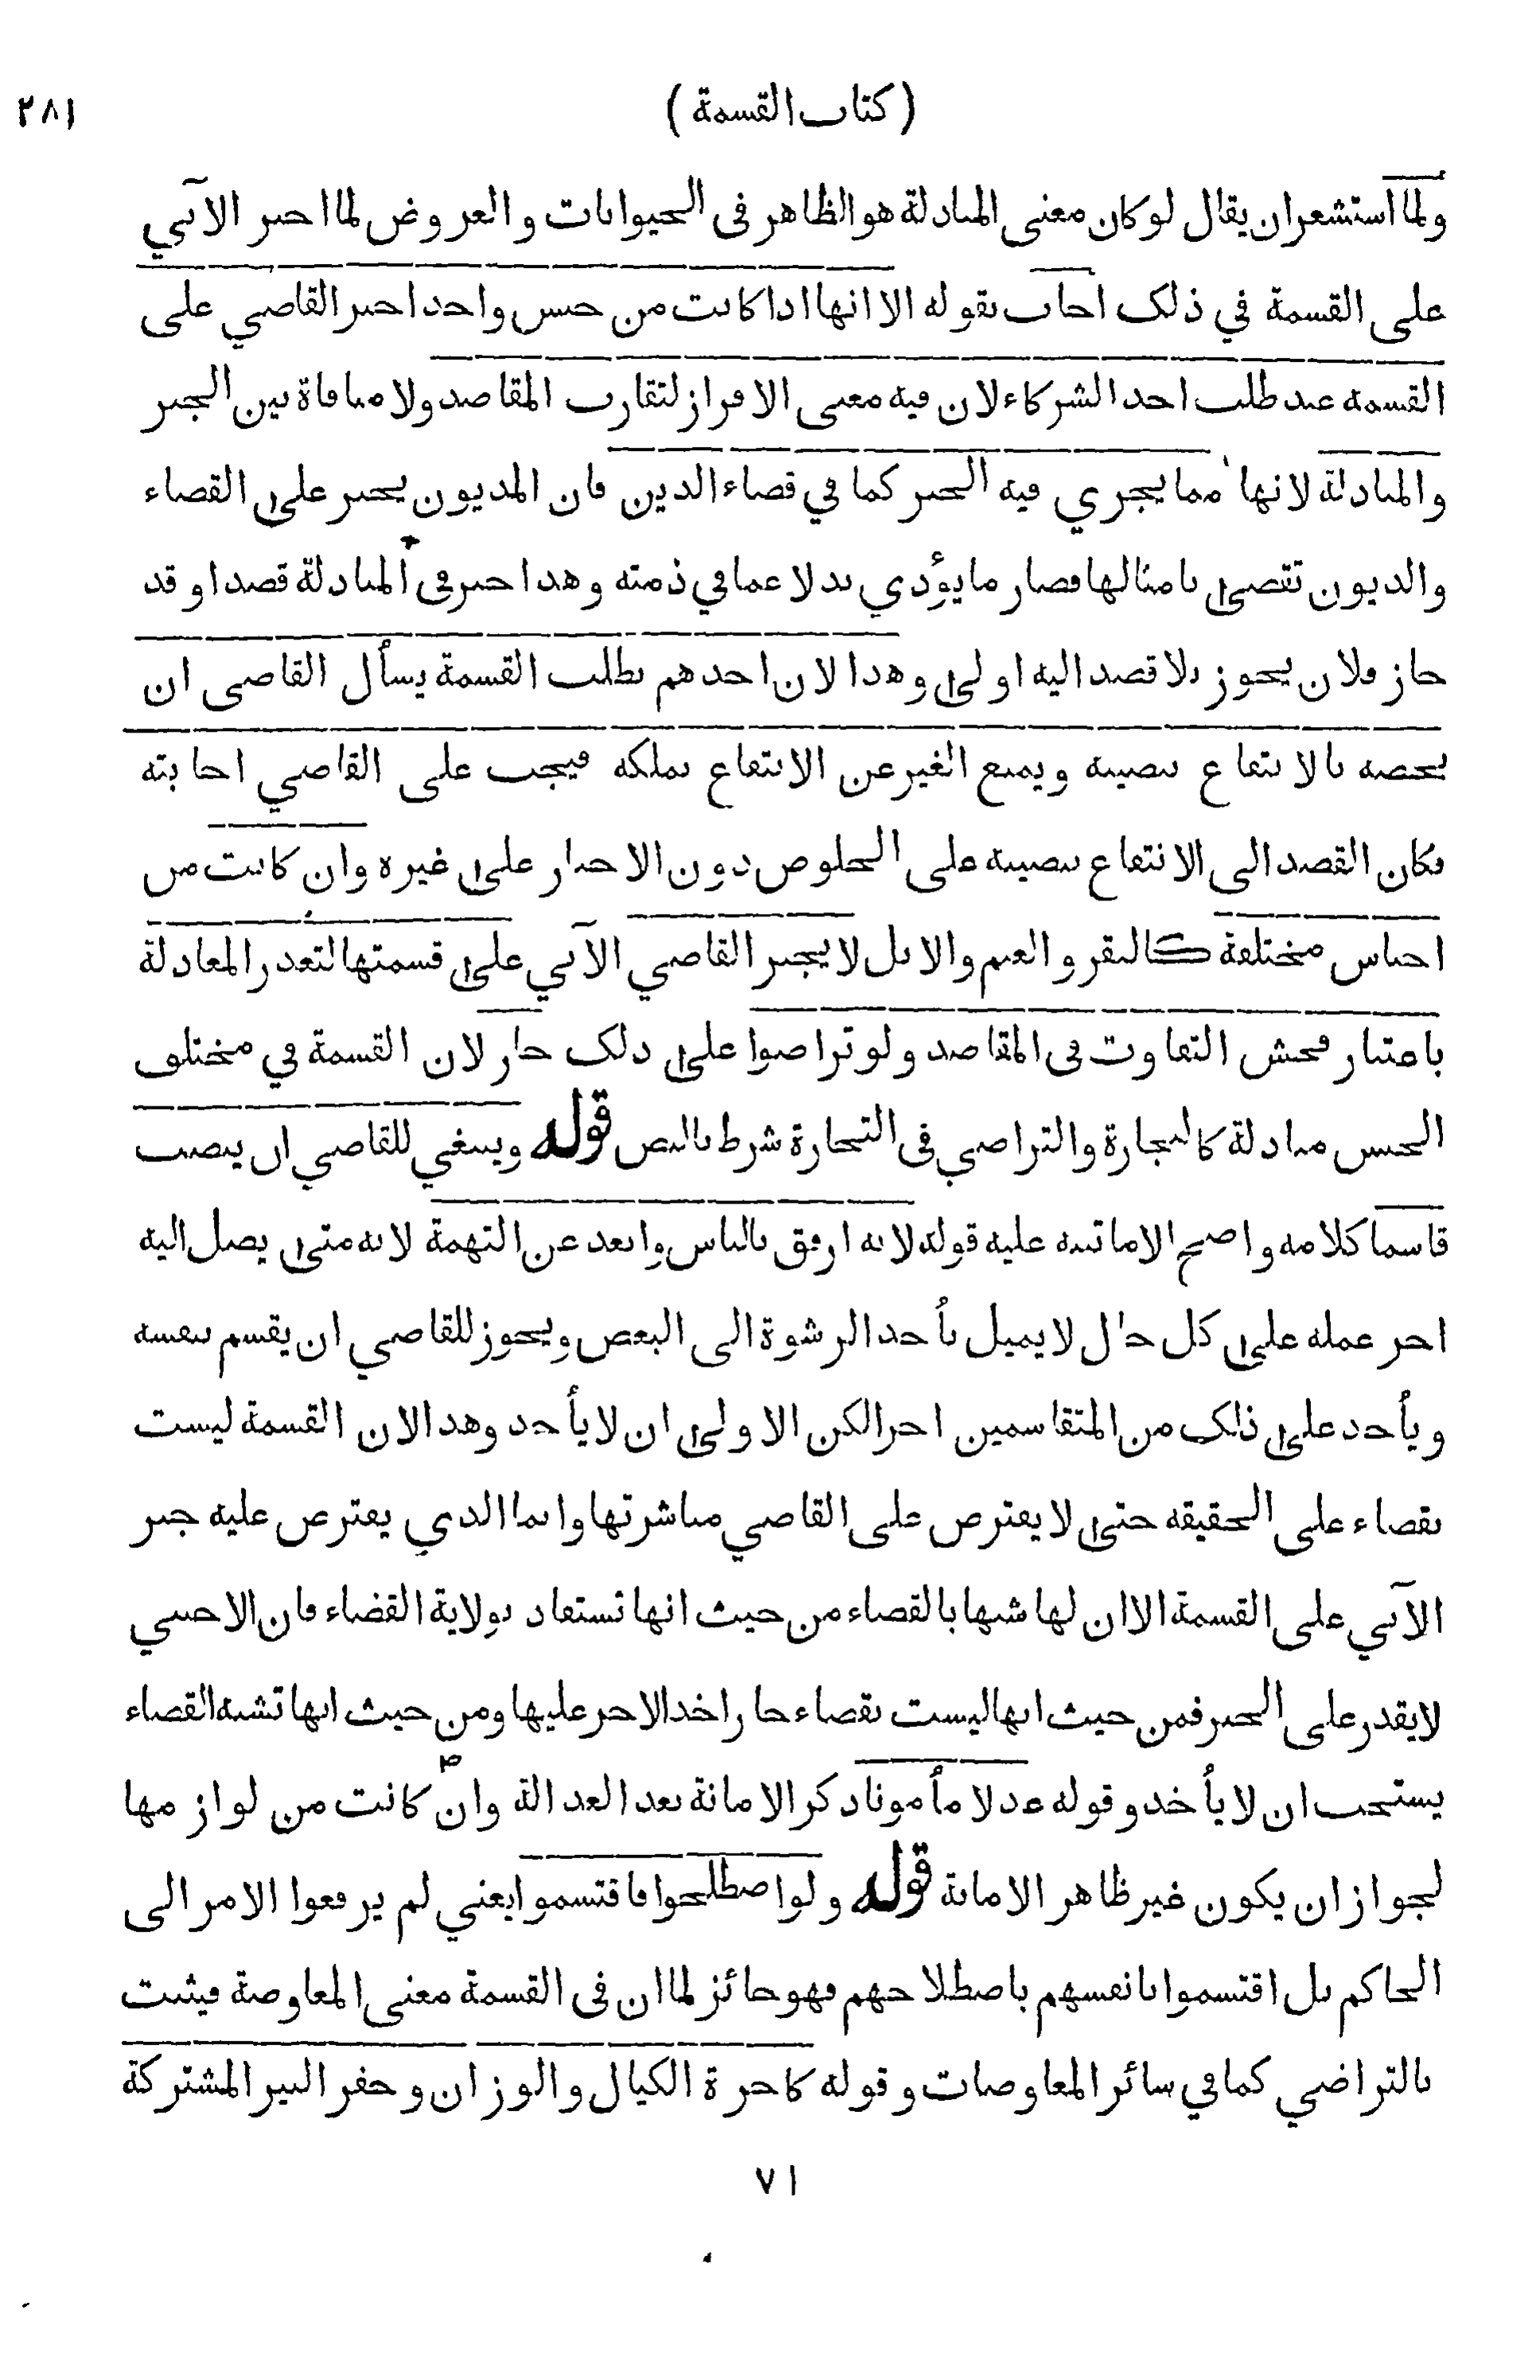 ( كتاب القسمة ) ٢٨١
ولما استشعر ان يقال لو كان معنى المبادلة هو الظاهر فى الحيوانات والعروض لما اجبر الآبي
على القسمة في ذلك اجاب بقوله الا انها اذا كانت من جنس واحد اجبر القاضي على
القسمة عند طلب احد الشركاء لان فيه معنى الافراز لتقارب المقاصد ولا منافاة بين الجبر
والمبادلة لانها مما يجري فيه الجبر كما في قضاء الدين فان المديون يجبر على القضاء
والديون تقضى بامثالها فصار ما يؤدي بدلا عما في ذمته وهذا جبر في المبادلة قصدا وقد
جاز فلان يجوز بلا قصد اليه اولى وهذا لان احدهم بطلب القسمة يسأل القاضى ان
يخصه بالانتفاع بنصيبه ويمنع الغير عن الانتفاع بملكه فيجب على القاضي اجابته
فكان القصد الى الانتفاع بنصيبه على الخلوص دون الاجبار على غيره وان كانت من
اجناس مختلفة كالبقر والغنم والابل لا يجبر القاضي الآبي على قسمتها لتعذر المعادلة
باعتبار فحش التفاوت فى المقاصد ولو تراضوا على ذلك جاز لان القسمة في مختلف
الجنس مبادلة كالتجارة والتراضي فى التجارة شرط بالنص قوله وينبغي للقاضي ان ينصب
قاسما كلامه واضح الا ما ننبه عليه قوله لانه ارفق بالناس وابعد عن التهمة لانه متى يصل اليه
اجر عمله على كل حال لا يميل بأخذ الرشوة الى البعض ويجوز للقاضي ان يقسم بنفسه
ويأخذ على ذلك من المتقاسمين اجرا لكن الاولى ان لا يأخذ وهذا لان القسمة ليست
بقضاء على الحقيقة حتى لا يفترض على القاضي مباشرتها وانما الذي يفترض عليه جبر
الآبي على القسمة الا ان لها شبها بالقضاء من حيث انها تستفاد بولاية القضاء فان الاجنبي
لا يقدر على الجبر فمن حيث انها ليست بقضاء جاز اخذ الاجر عليها ومن حيث انها تشبه القضاء
يستحب ان لا يأخذ وقوله عدلا مأمونا ذكر الامانة بعد العدالة وان كانت من لوازمها
لجواز ان يكون غير ظاهر الامانة قوله ولو اصطلحوا فاقتسموا يعني لم يرفعوا الامر الى
الحاكم بل اقتسموا بانفسهم باصطلاحهم فهو جائز لما ان فى القسمة معنى المعاوضة فيثبت
بالتراضي كما في سائر المعاوضات وقوله كاجرة الكيال والوزان وحفر البير المشتركة
٧١